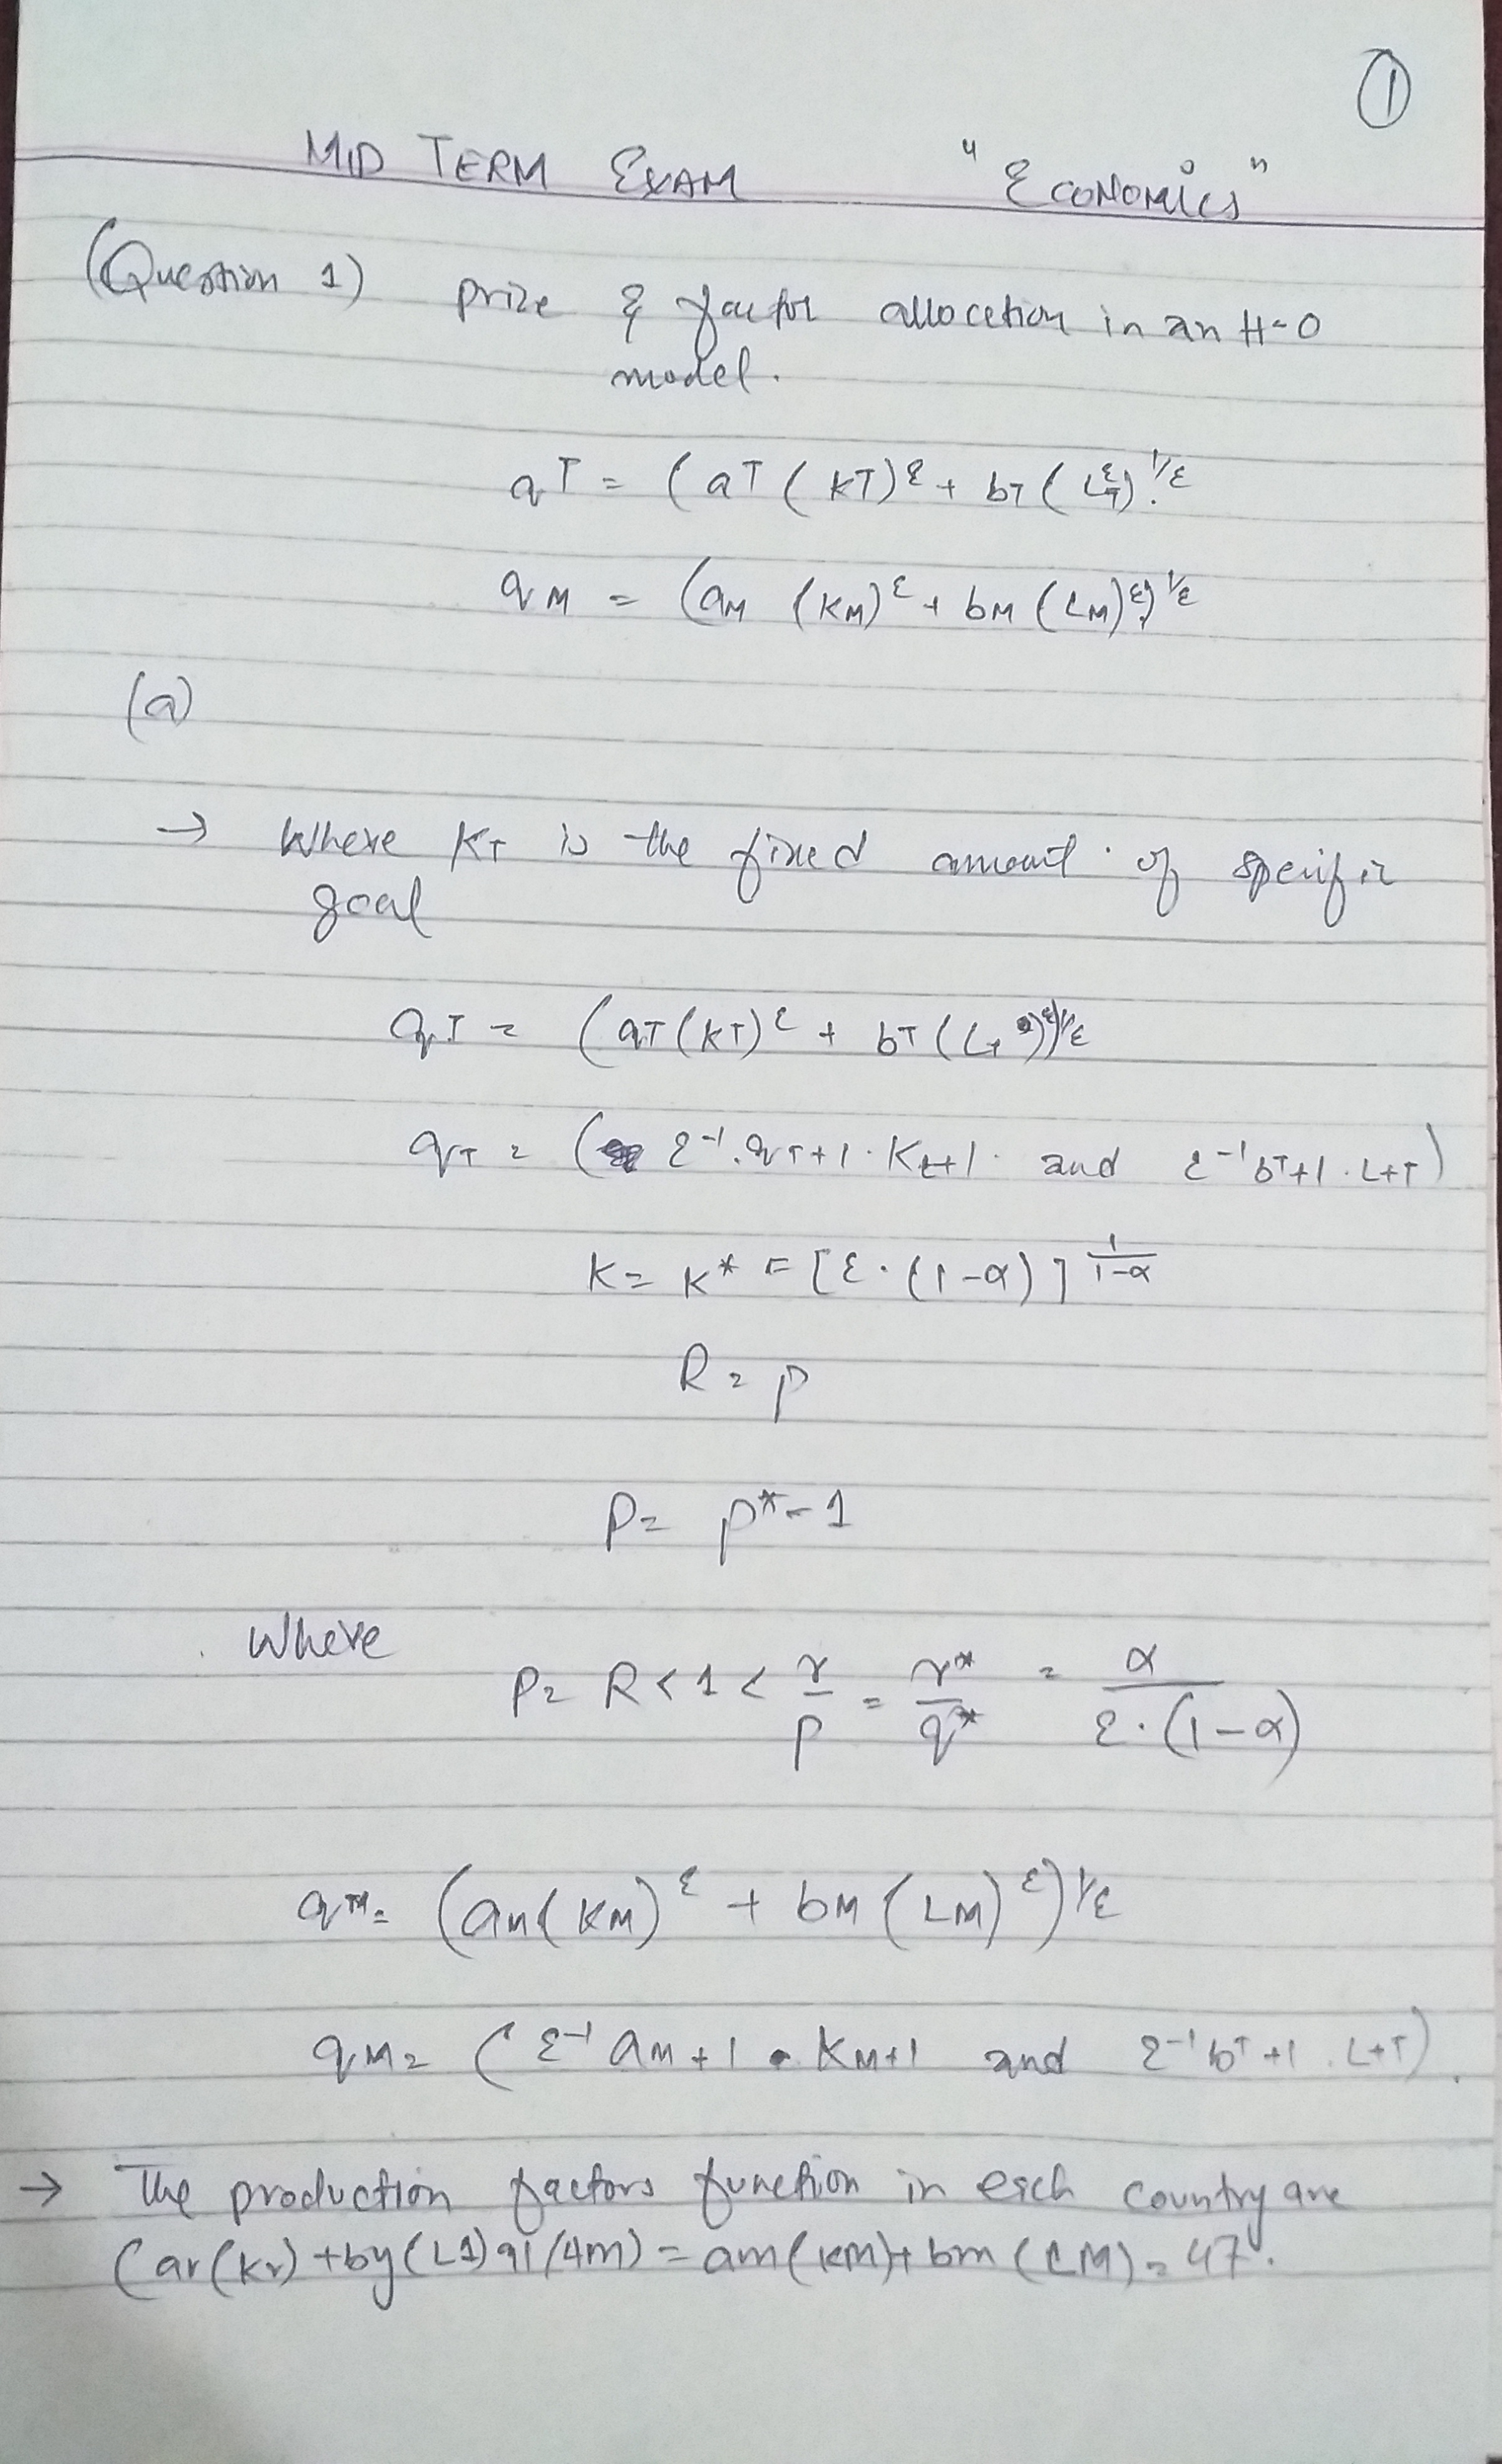 ①
MID TERM EXAM "Economics"
(Question 1) prize & factor allocetion in an H-O
model.
qT = (aT (KT)^ε + bT (L^ε_T)^1/ε
qM = (aM (KM)^ε + bM (LM)^ε)^1/ε
(a)
→ Where KT is the fixed amount of specific
goal
qT = (aT(KT)^ε + bT (LT)^ε)^1/ε
qT = ( ε^-1. qT+1 . Kt+1 . and ε^-1 bT+1 . L+T)
K = K* = [ε . (1-α)] ^1/1-α
R = P
P = P* - 1
Where
P = R < 1 < r/P = r*/q* = α/ε.(1-α)
qM = (aM(KM)^ε + bM (LM)^ε)^1/ε
qM = (ε^-1 aM+1 . KM+1 and ε^-1 bT+1 . L+T).
→ The production factors function in each country are
(ar(kr) + by(L1) q1/(4m) = am(km) + bm (LM) = 47.